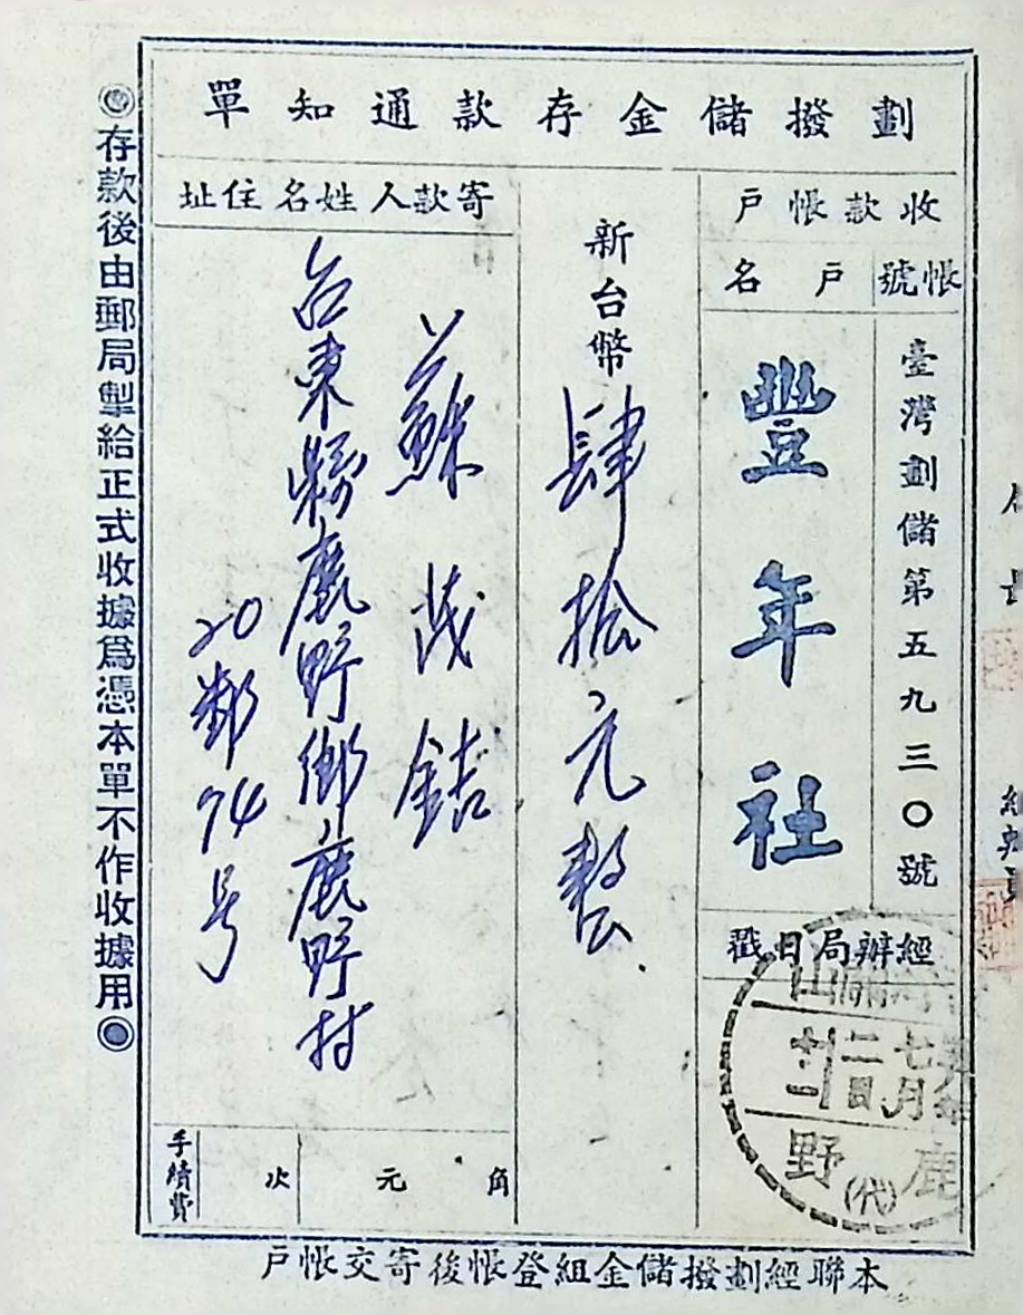 劃撥儲金存款通知單
收款帳戶
帳號
戶名
臺灣劃儲第五九三〇號
豐年社
經辦局日戳
七月
二日
鹿野
(代)
新台幣肆拾元整
寄款人姓名住址
蘇茂銡
台東縣鹿野鄉鹿野村
20鄰74号
角
元
次
手續費
◎存款後由郵局掣給正式收據為憑本單不作收據用◎
本聯經劃撥儲金組登帳後寄交帳戶